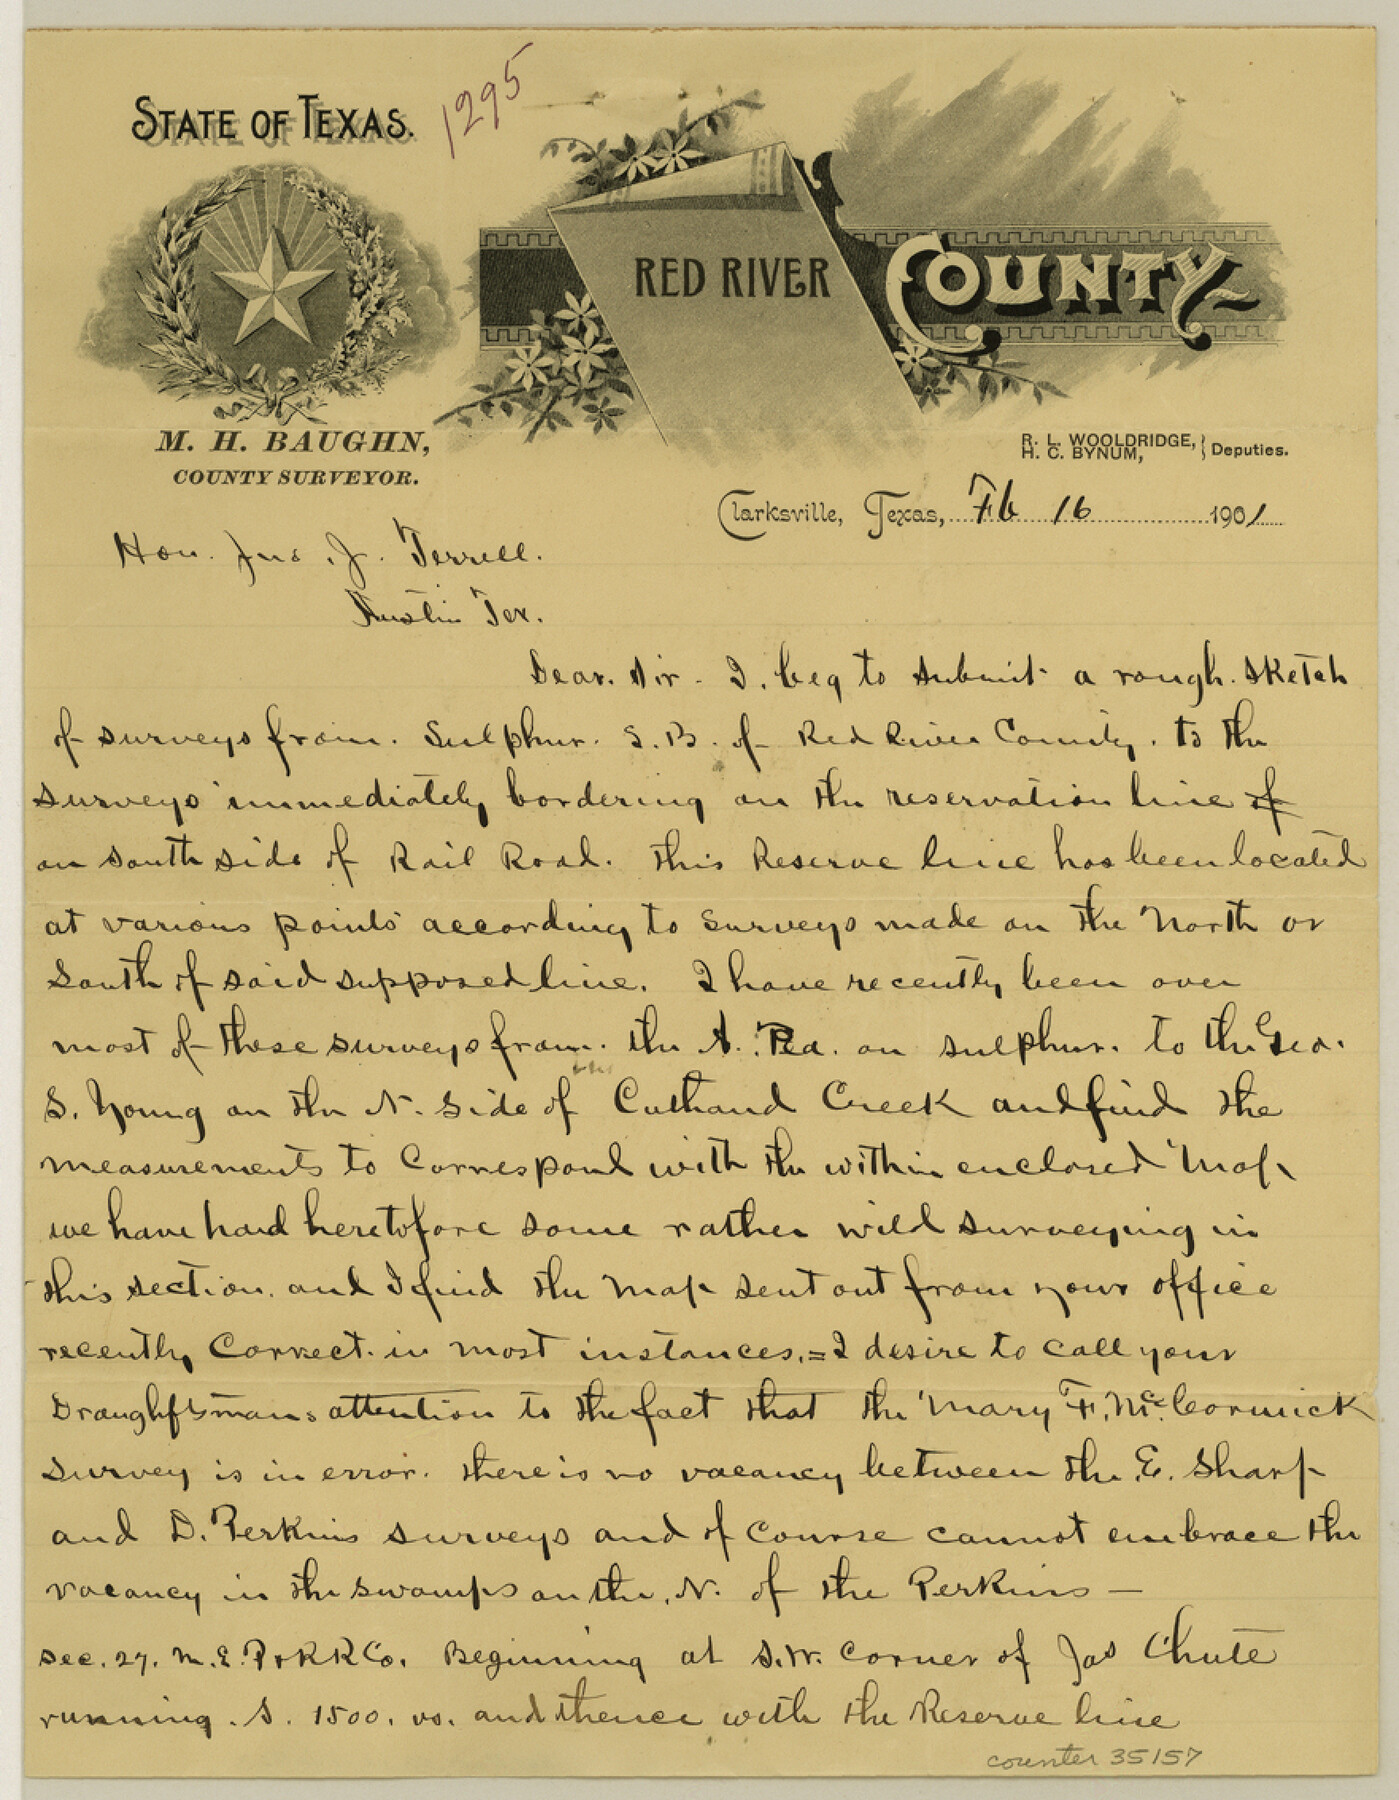 1295
STATE OF TEXAS.
RED RIVER COUNTY
M. H. BAUGHN,
COUNTY SURVEYOR.
R. L. WOOLDRIDGE,
H. C. BYNUM,
Deputies.
Clarksville, Texas, Feb 16 1901
Hon. Jno. J. Terrell.
Austin Tex.
Dear. Sir - I. beg to submit a rough. sketch
of surveys from. Sulphur. S.B. of Red River County. to the
surveys immediately bordering on the reservation line of
on south side of Rail Road. This Reserve line has been located
at various points according to surveys made on the North or
South of said supposed line. I have recently been over
most of these surveys from. the A. Rea. on sulphur. to the Geo.
S. Young on the N. side of Cuthand Creek and find the
measurements to Correspond with the within enclosed Map
we have had heretofore some rather wild surveying in
this section. and I find the map sent out from your office
recently Correct. in most instances. = I desire to call your
Draughftsmans attention to the fact that the Mary F. McCormick
survey is in error. there is no vacancy between the E. Sharp
and D. Perkins surveys and of course cannot embrace the
vacancy in the swamps on the. N. of the Perkins —
Sec. 27. M.E.P&RRCo. Beginning at S.W. Corner of Jas Chute
running. S. 1500. vs. and thence with the Reserve line
counter 35157